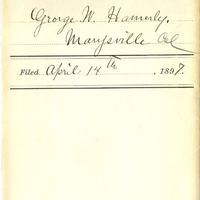 George W. Hamerly,
Marysville Cal
Filed April 14th, 1897.